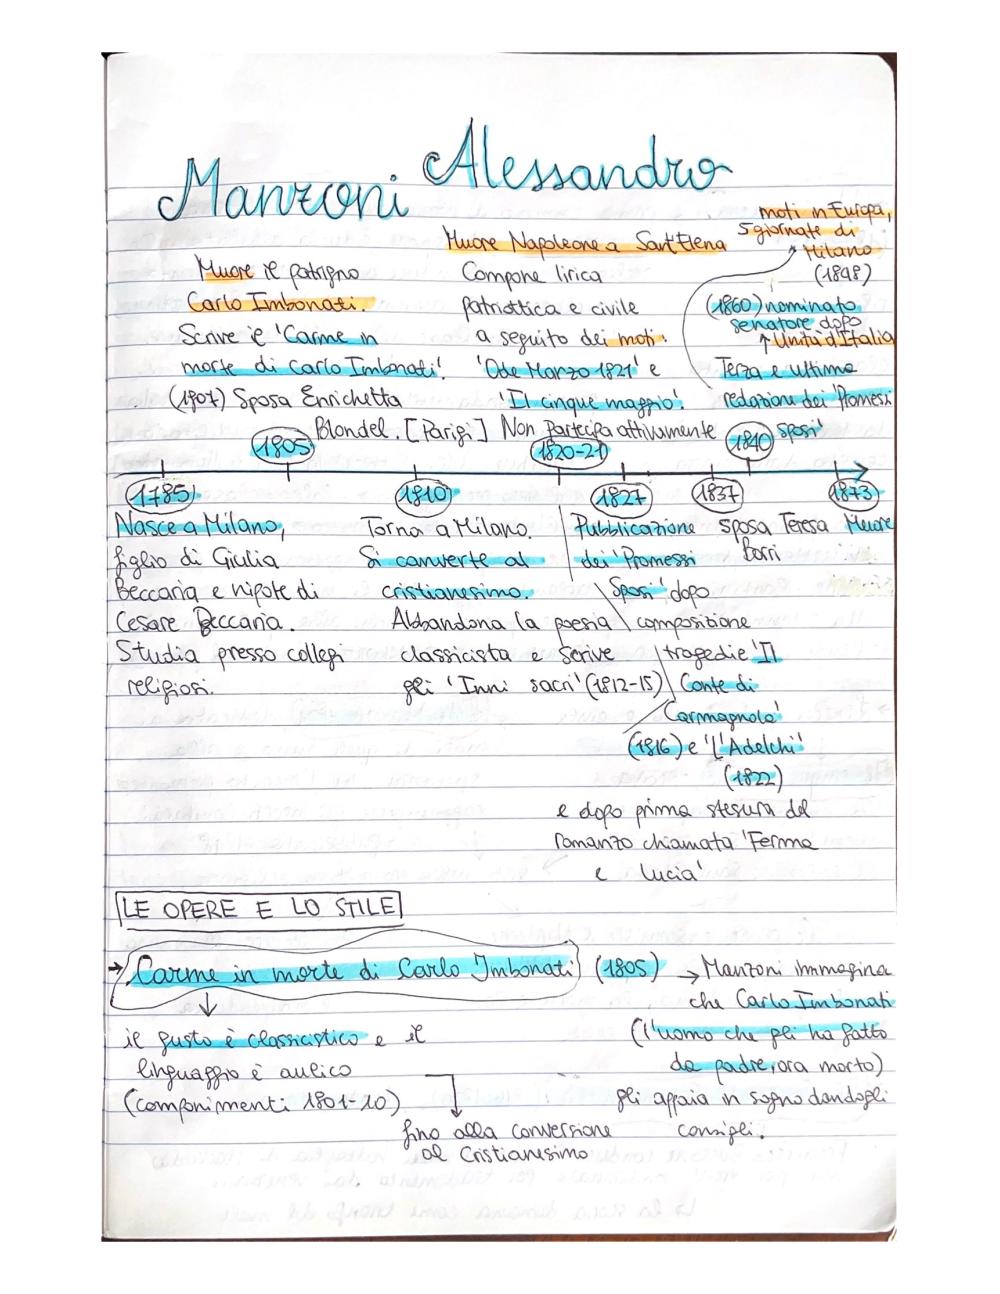 Manzoni Alessandro
moti in Europa,
5 giornate di
Milano
(1848)
Muore Napoleone a Sant'Elena
Compone lirica
patriottica e civile
a seguito dei moti.
'Ode Marzo 1821' e
'Il cinque maggio'.
Non partecipa attivamente
Muore il patrigno
Carlo Imbonati.
Scrive il 'Carme in
morte di Carlo Imbonati'.
(1807) Sposa Enrichetta
Blondel. [Parigi]
(1860) nominato
senatore dopo
↑ Unità d'Italia
Terza e ultima
redazione dei 'Promessi
sposi'
1805
1820-21
1840
1785
1810
1827
1837
1873
Nasce a Milano,
figlio di Giulia
Beccaria e nipote di
Cesare Beccaria.
Studia presso collegi
religiosi.
Torna a Milano.
Si converte al
cristianesimo.
Abbandona la poesia
classicista e scrive
gli 'Inni sacri' (1812-15)
Pubblicazione
dei 'Promessi
Sposi' dopo
composizione
tragedie 'Il
Conte di
Carmagnola'
(1816) e 'L'Adelchi'
(1822)
e dopo prima stesura del
romanzo chiamata 'Ferma
e Lucia'
sposa Teresa
Borri
Muore
LE OPERE E LO STILE
→ Carme in morte di Carlo Imbonati (1805) → Manzoni immagina
che Carlo Imbonati
(l'uomo che gli ha fatto
da padre, ora morto)
gli appaia in sogno dandogli
consigli.
il gusto è classicistico e il
linguaggio è aulico
(componimenti 1801-10)
fino alla conversione
al Cristianesimo